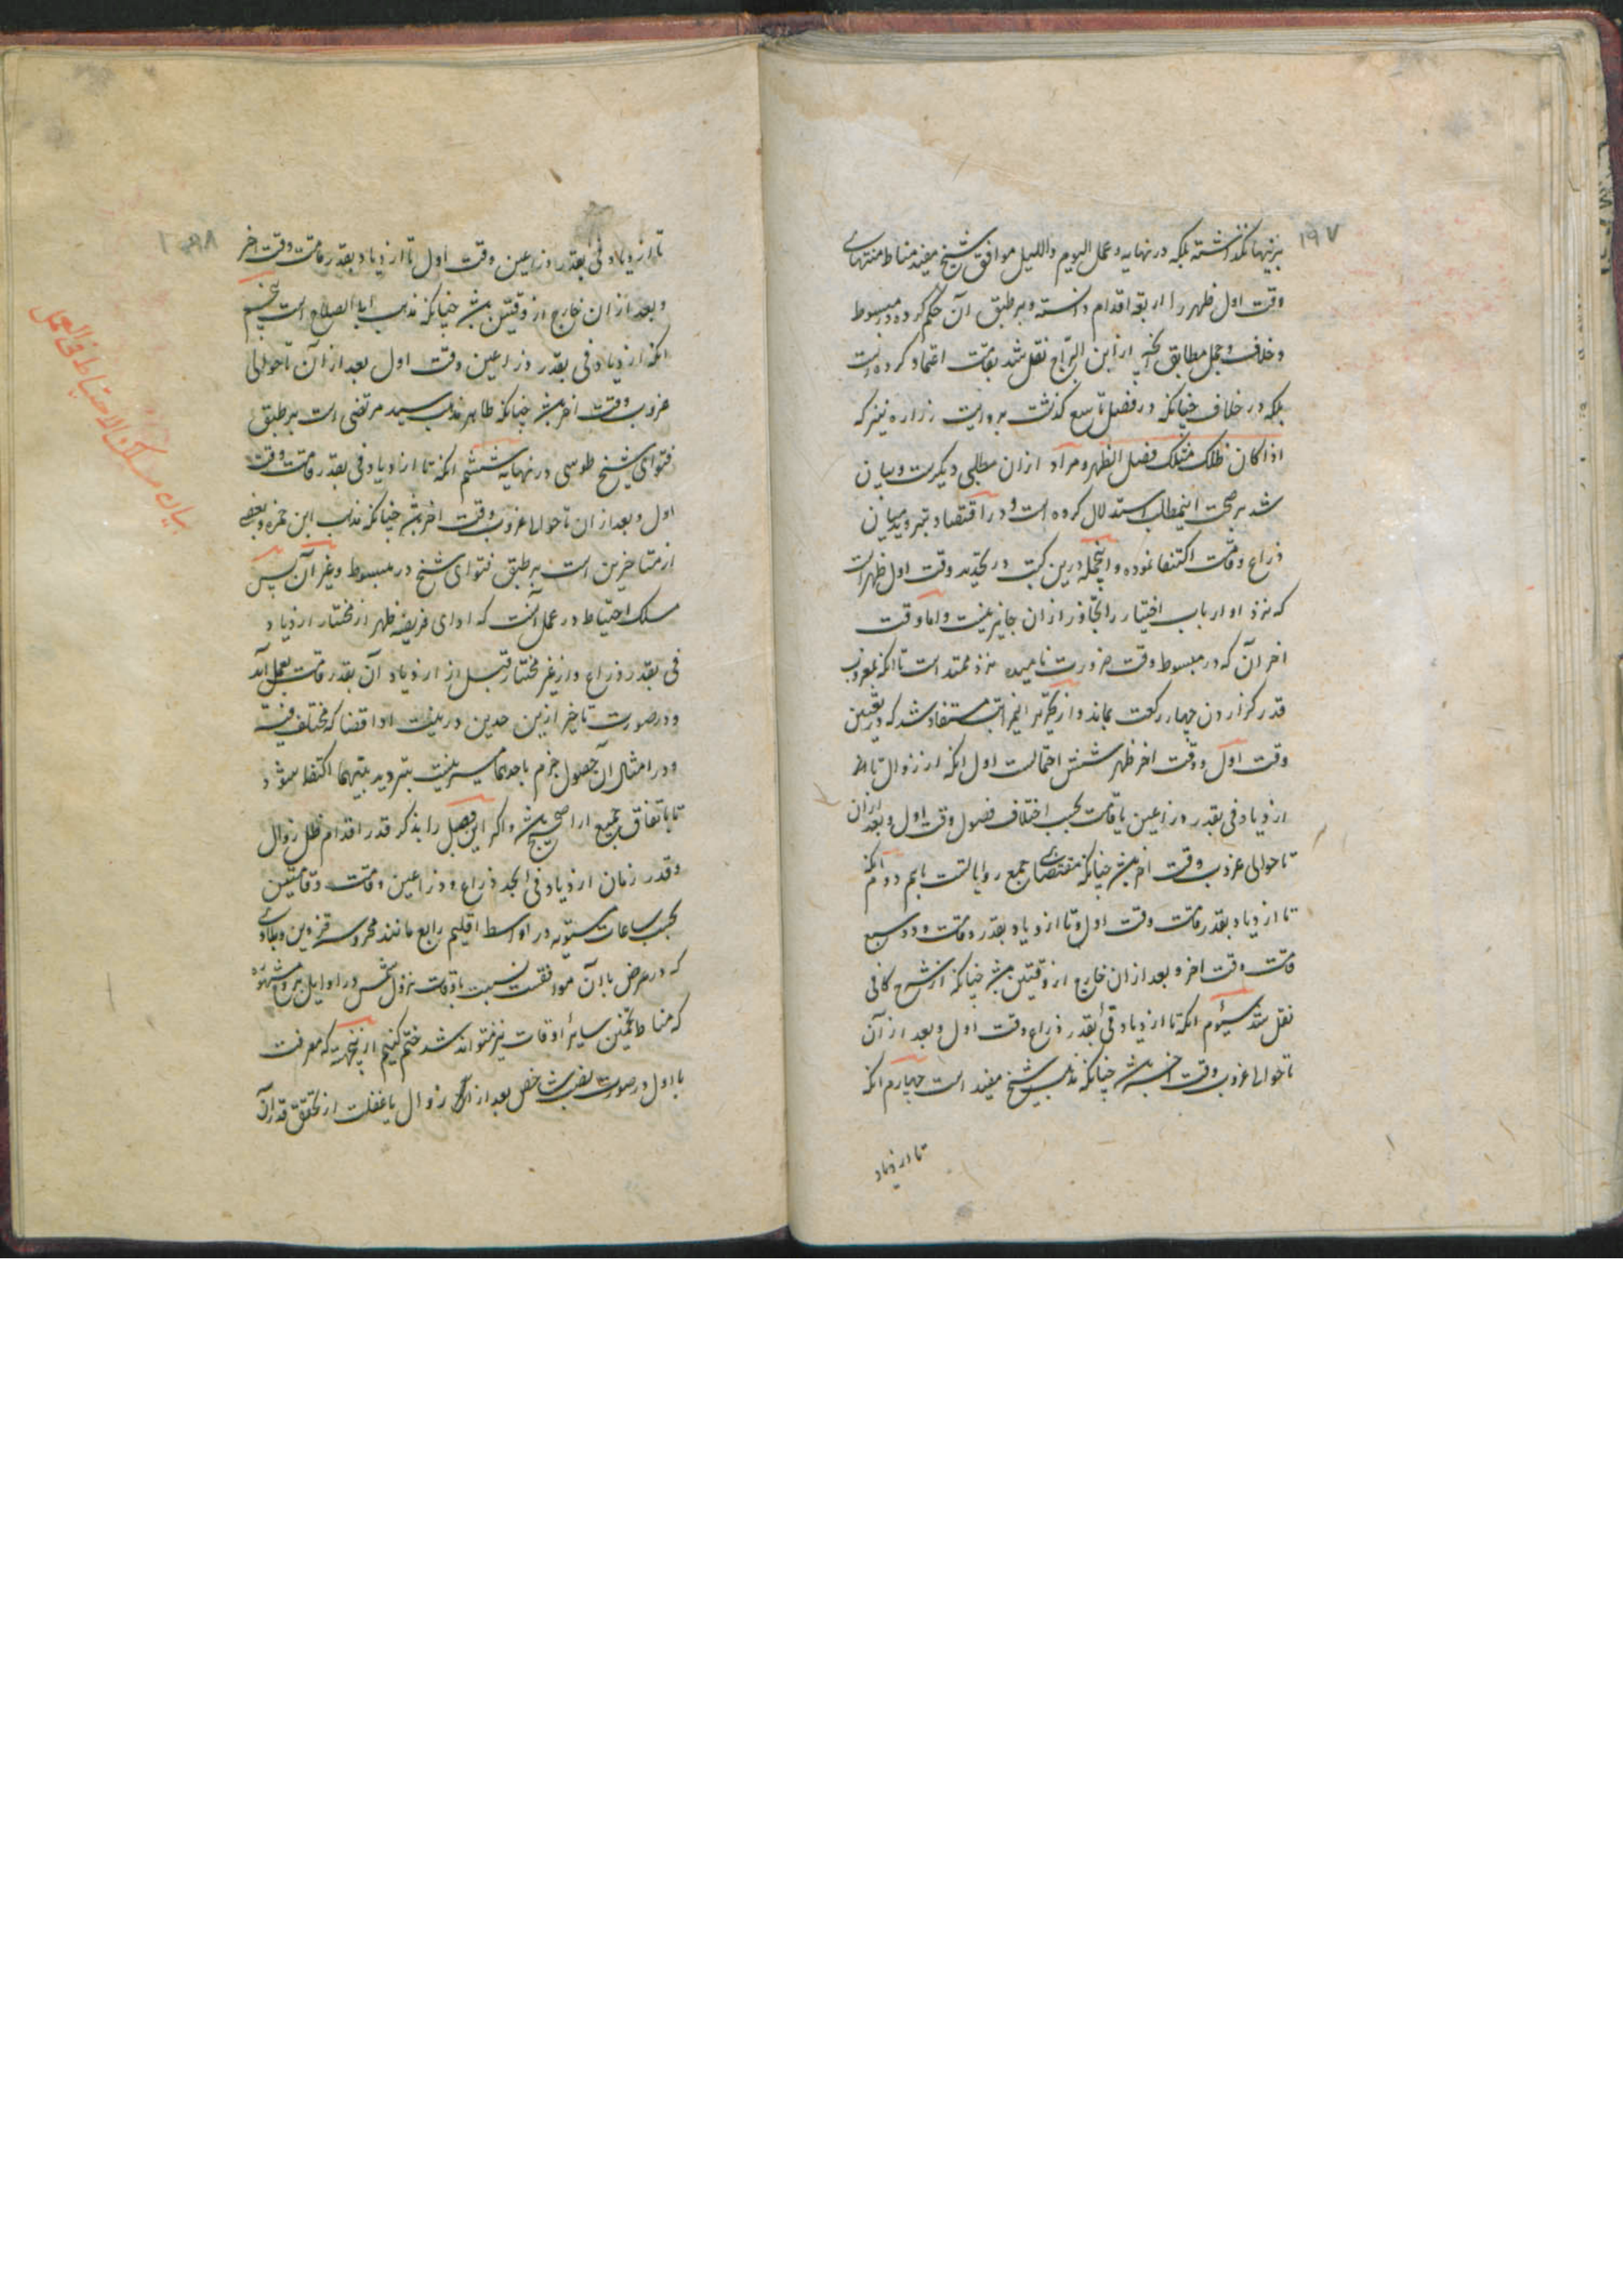 ۱۹۷
نیز نیها نگذاشته بلکه در نهایه و عمل الیوم واللیل موافق شیخ مفید مناط منتهای
وقت اول ظهر را اربعة اقدام دانسته و بر طبق آن حکم کرده و در مبسوط
و خلاف و جمل مطابق آنچه از ابن البراج نقل شد بقامت اعتماد کرده است
بلکه در خلاف چنانکه در فصل تاسع گذشت بروایت زراره نیز که
اذا کان ظلک مثلک فصل الظهر و مراد ازان مطلبی دیگرست و بیان
شد بر صحت اینمطلب استدلال کرده است و در اقتصاد بتردید میان
ذراع و قامت اکتفا نموده و اینجمله درین کتب در تحدید وقت اول ظهرست
که نزد او ارباب اختیار را تجاوز ازان جایز نیست و اما وقت
اخر آن که در مبسوط وقت ضرورت نامیده نزد ممتد است تا انکه بغروب
قدر گزاردن چهار رکعت بماند و از تحریر این مراتب مستفاد شد که در تعیین
وقت اول و وقت اخر ظهر شش احتمالست اول انکه از زوال تا
ازدیاد فی بقدر ذراعین یا قامت بحسب اختلاف فصول وقت اول و بعد ازان
تا حوالی غروب وقت اخر باشد چنانکه مقتضای جمع روایاتست باهم دوم انکه
تا ازدیاد بقدر قامت وقت اول و تا ازدیاد بقدر قامت و دو سبع
قامت وقت اخر و بعد ازان خارج از وقتین باشد چنانکه از شرح کافی
نقل شد سیوم انکه تا ازدیاد فی بقدر ذراع وقت اول و بعد از آن
تا حوالی غروب وقت اخر باشد چنانکه مذهب شیخ مفید است چهارم انکه
تا ازدیاد
۱۹۸
تا ازدیاد فی بقدر ذراعین وقت اول تا ازدیاد بقدر قامت وقت اخر
و بعد ازان خارج از وقتین باشد چنانکه مذهب ابا الصلاح است پنجم
انکه ازدیاد فی بقدر ذراعین وقت اول بعد از آن تا حوالی
غروب وقت اخر باشد چنانکه ظاهر مذهب سید مرتضی است بر طبق
فتوای شیخ طوسی در نهایه ششم انکه تا ازدیاد فی بقدر قامت وقت
اول و بعد ازان تا حوالی غروب وقت اخر باشد چنانکه مذهب ابن حمزه و بعضی
از متاخرین است بر طبق فتوای شیخ در مبسوط و غیر آن پس
مسلک احتیاط در عمل آنست که ادای فریضه ظهر از مختار ازدیاد
فی بقدر ذراع و از غیر مختار قبل از ازدیاد آن بقدر قامت بعمل آید
و در صورت تاخیر ازین حدین در نیت ادا قضا که مختلف فیه
و در امثال آن حصول جزم باحدهما میسر نیست بتردید بینهما اکتفا شود
تا باتفاق جمیع ارا صحیح باشد و اگر این فصل را بذکر قدر اقدام ظل زوال
و قدر زمان ازدیاد فی بحد ذراع و ذراعین و قامت و قامتین
بحسب ساعات مستویه در اواسط اقلیم رابع مانند محروسه قزوین و بلادی
که در عرض با آن موافقست نسبت باوقات نزول شمس در اوایل بروج مشهوره
که مناط تخمین سایر اوقات نیز تواند شد ختم کنیم از اینجهت که معرفت
با اول در صورت نصب شاخص بعد از زوال با غفلت از تحقق قدر آن
بیان مسلک الاحتیاط فی العمل